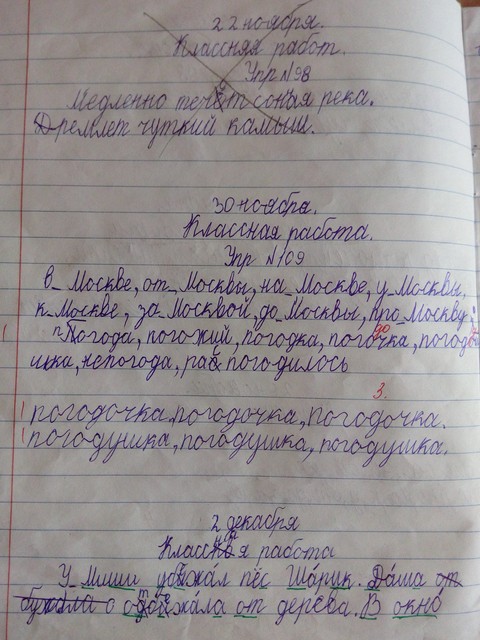 22 ноября.
Классная работ.
Упр №98
Медленно течёт сонная река.
Дремлет чуткий камыш.
30 ноября.
Классная работа.
Упр №109
в Москве, от Москвы, на Москве, у Москвы,
к Москве, за Москвой, до Москвы, про Москву.
Погода, погожий, погодка, погодочка, погоду
шка, непогода, распогодилось
3.
погодочка, погодочка, погодочка.
погодушка, погодушка, погодушка.
2 декабря
Классная работа
У Миши убежал пёс Шарик. Дама
с от дерева. В окно